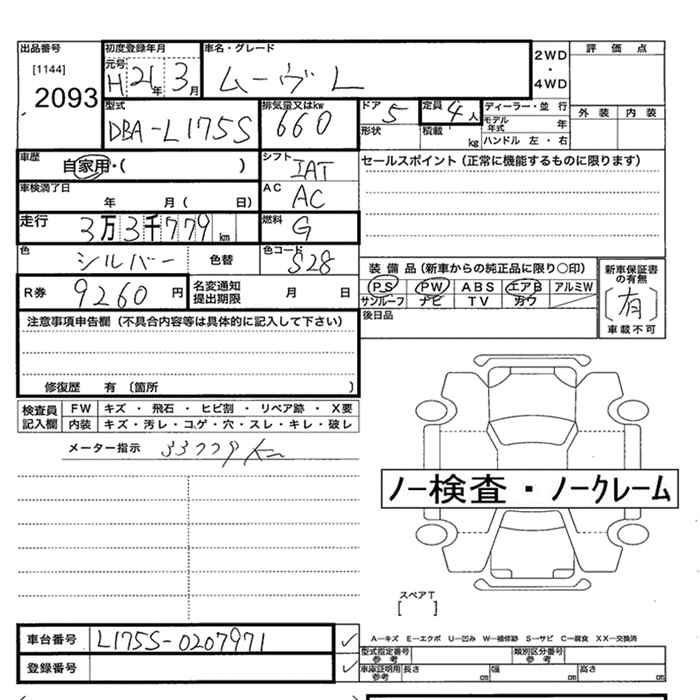 出品番号 初度登録年月 車名・グレード 2WD ・ 4WD 評価点
[1144] 元号 H 21年 3月 ムーヴ L
2093
型式 DBA-L175S 排気量又はkw 660 ドア 5 定員 4人 ディーラー・並行 外装 内装
形状 積載 kg モデル年式 年
ハンドル 左・右
車歴 自家用・( ) シフト IAT セールスポイント(正常に機能するものに限ります)
車検満了日 年 月( 日) AC AC
走行 3万3千779km 燃料 G
色 シルバー 色替 色コード S28
装備品(新車からの純正品に限り○印) 新車保証書の有無
R券 9260円 名変通知提出期限 月 日 PS PW ABS エアB アルミW (有)
サンルーフ ナビ TV カワ 車載不可
注意事項申告欄(不具合内容等は具体的に記入して下さい) 後日品
修復歴 有 〔箇所 )
検査員記入欄 FW キズ・飛石・ヒビ割・リペア跡・X要
内装 キズ・汚レ・コゲ・穴・スレ・キレ・破レ
メーター指示 33779Km
ノー検査・ノークレーム
スペアT
[ ]
車台番号 L175S-0207971 ✓ A―キズ E―エクボ U―凹み W―補修跡 S―サビ C―腐食 XX―交換済
型式指定番号 参考 類別区分番号 参考
登録番号 ✓ 車庫証明用参考 長さ cm 幅 cm 高さ cm